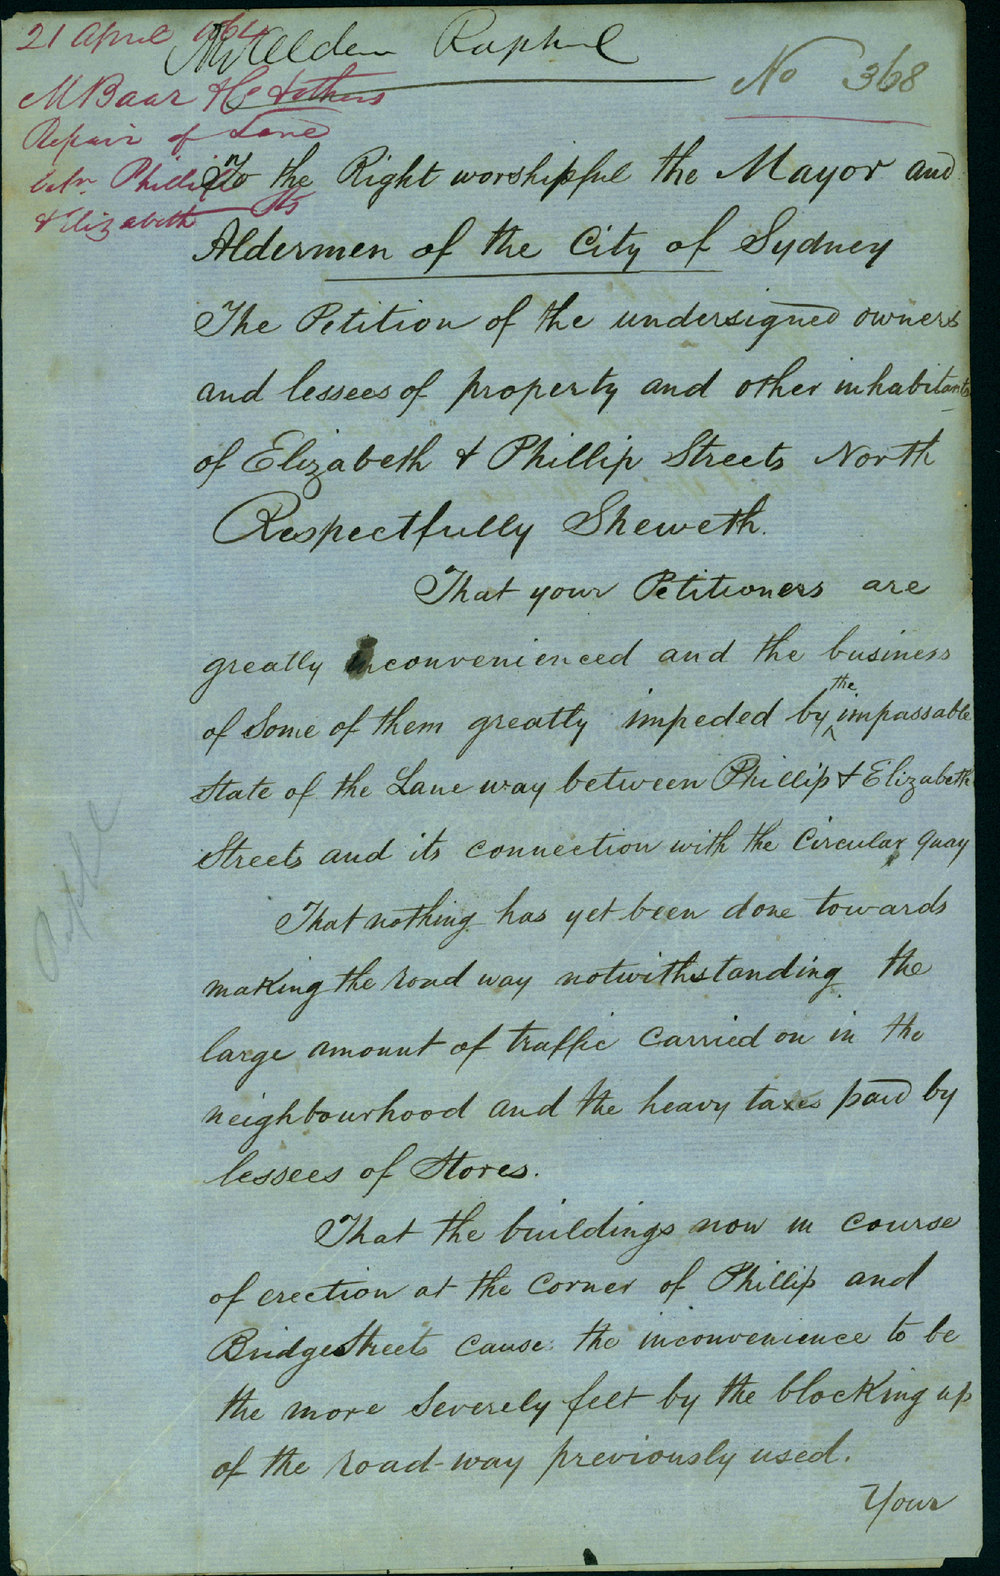 21 April 1864
Mr Alderman Raphael
No 368
M Baar & Co & others
Repair of Lane
betn. Phillip
& Elizabeth Sts
To the Right worshipful the Mayor and
Aldermen of the City of Sydney
The Petition of the undersigned owners
and lessees of property and other inhabitants
of Elizabeth & Phillip Streets North
Respectfully Sheweth.
That your Petitioners are
greatly inconvenienced and the business
of some of them greatly impeded by the impassable
state of the Lane way between Phillip & Elizabeth
Streets and its connection with the Circular Quay
That nothing has yet been done towards
making the road way notwithstanding the
large amount of traffic carried on in the
neighbourhood and the heavy taxes paid by
lessees of Stores.
That the buildings now in course
of erection at the corner of Phillip and
Bridge Streets cause the inconvenience to be
the more severely felt by the blocking up
of the road-way previously used.
Your